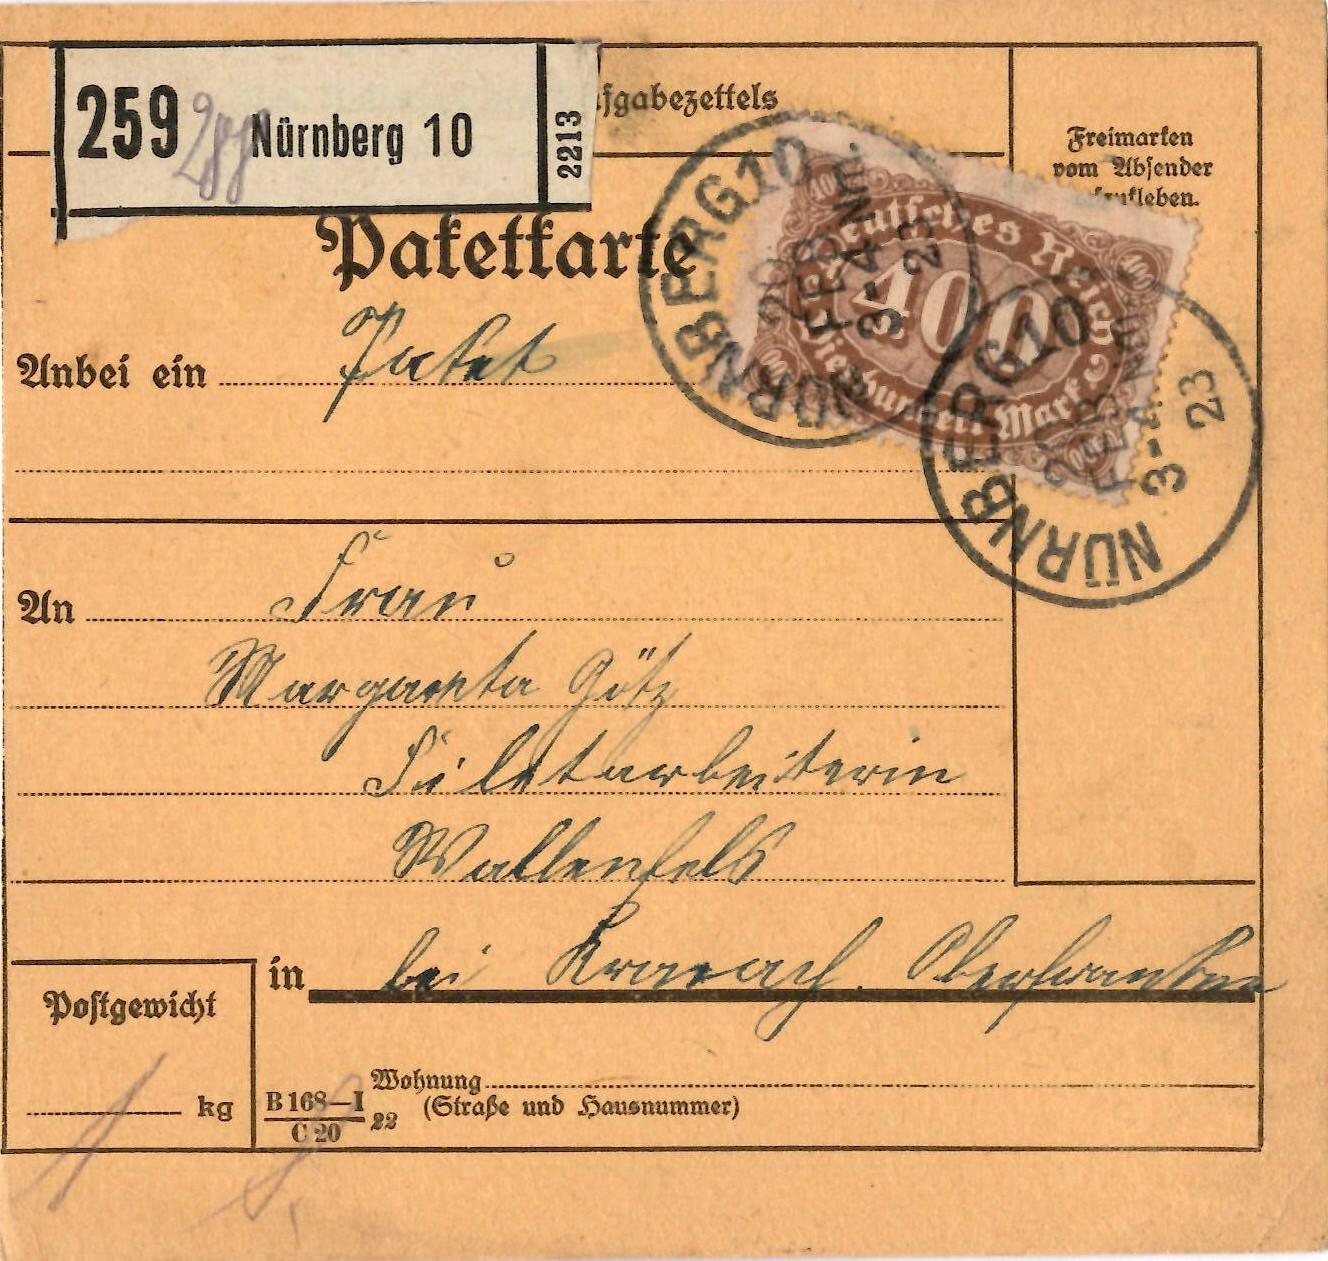 259 Nürnberg 10 2213
fgabezettels
Freimarken
vom Absender
aufkleben.
Paketkarte
NÜRNBERG 10
20. FEB
3-4 Nm.
23
Deutsches Reich
400
Vierhundert Mark
NÜRNBERG 10
20. FEB
3-4 Nm.
23
Anbei ein Paket
An Frau
Margareta Götz
Filetarbeiterin
Wallenfels
in bei Kronach. Oberfranken
Postgewicht
1 kg
Wohnung
(Straße und Hausnummer)
B 168—I
C 20
22